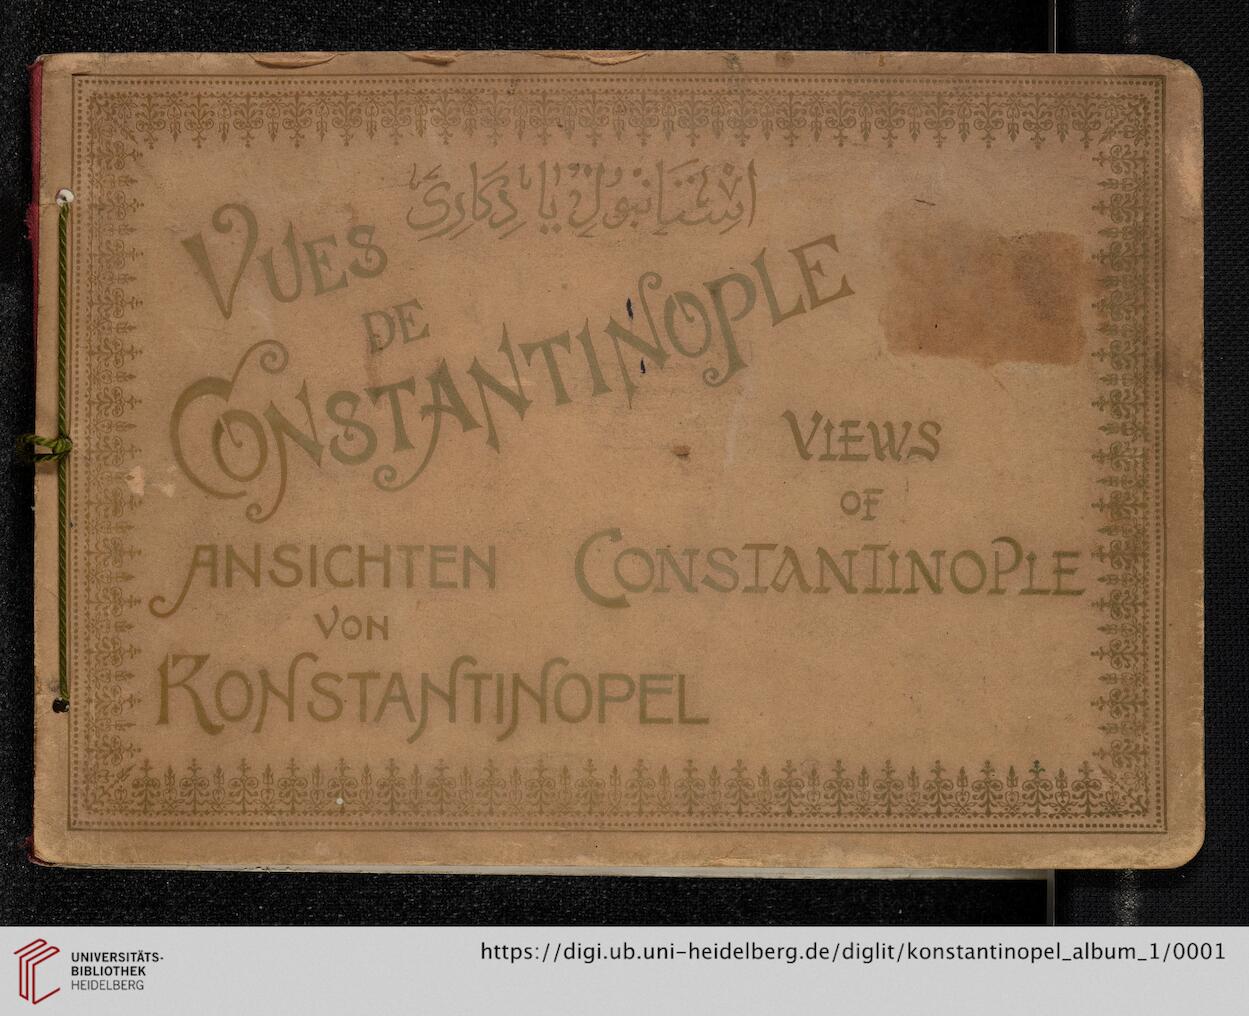 استانبول یادکاری
VUES
DE
CONSTANTINOPLE
VIEWS
OF
CONSTANTINOPLE
ANSICHTEN
VON
KONSTANTINOPEL
UNIVERSITÄTS-
BIBLIOTHEK
HEIDELBERG
https://digi.ub.uni-heidelberg.de/diglit/konstantinopel_album_1/0001